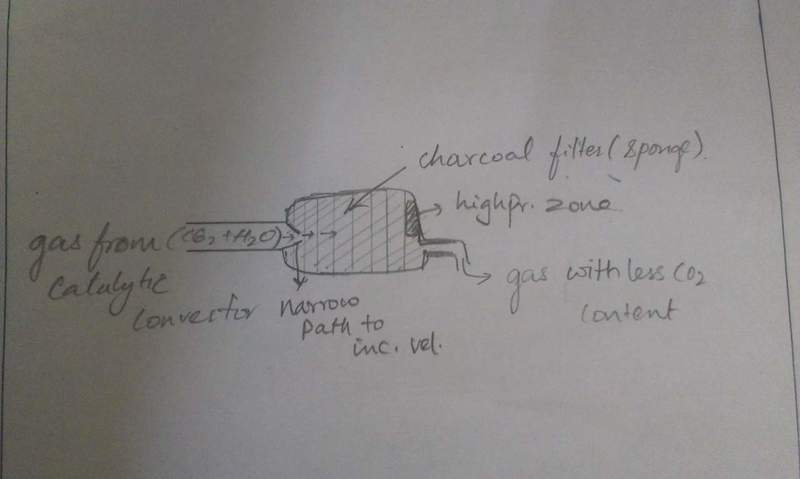 charcoal filter (sponge).
highpr. zone
gas from (CO2 + H2O)
Catalytic
Convertor
narrow
path to
inc. vel.
gas with less CO2
content